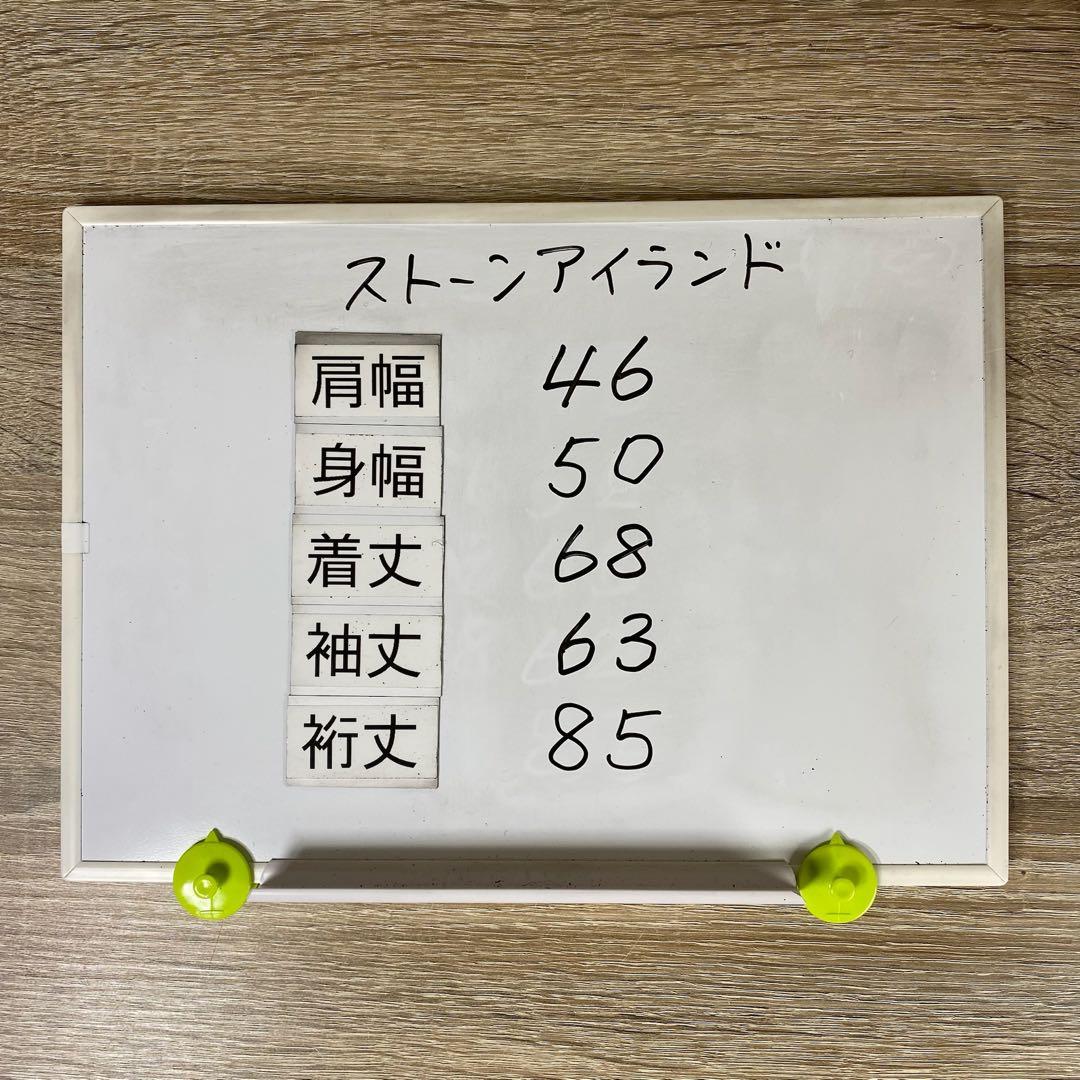 ストーンアイランド
肩幅 46
身幅 50
着丈 68
袖丈 63
裄丈 85